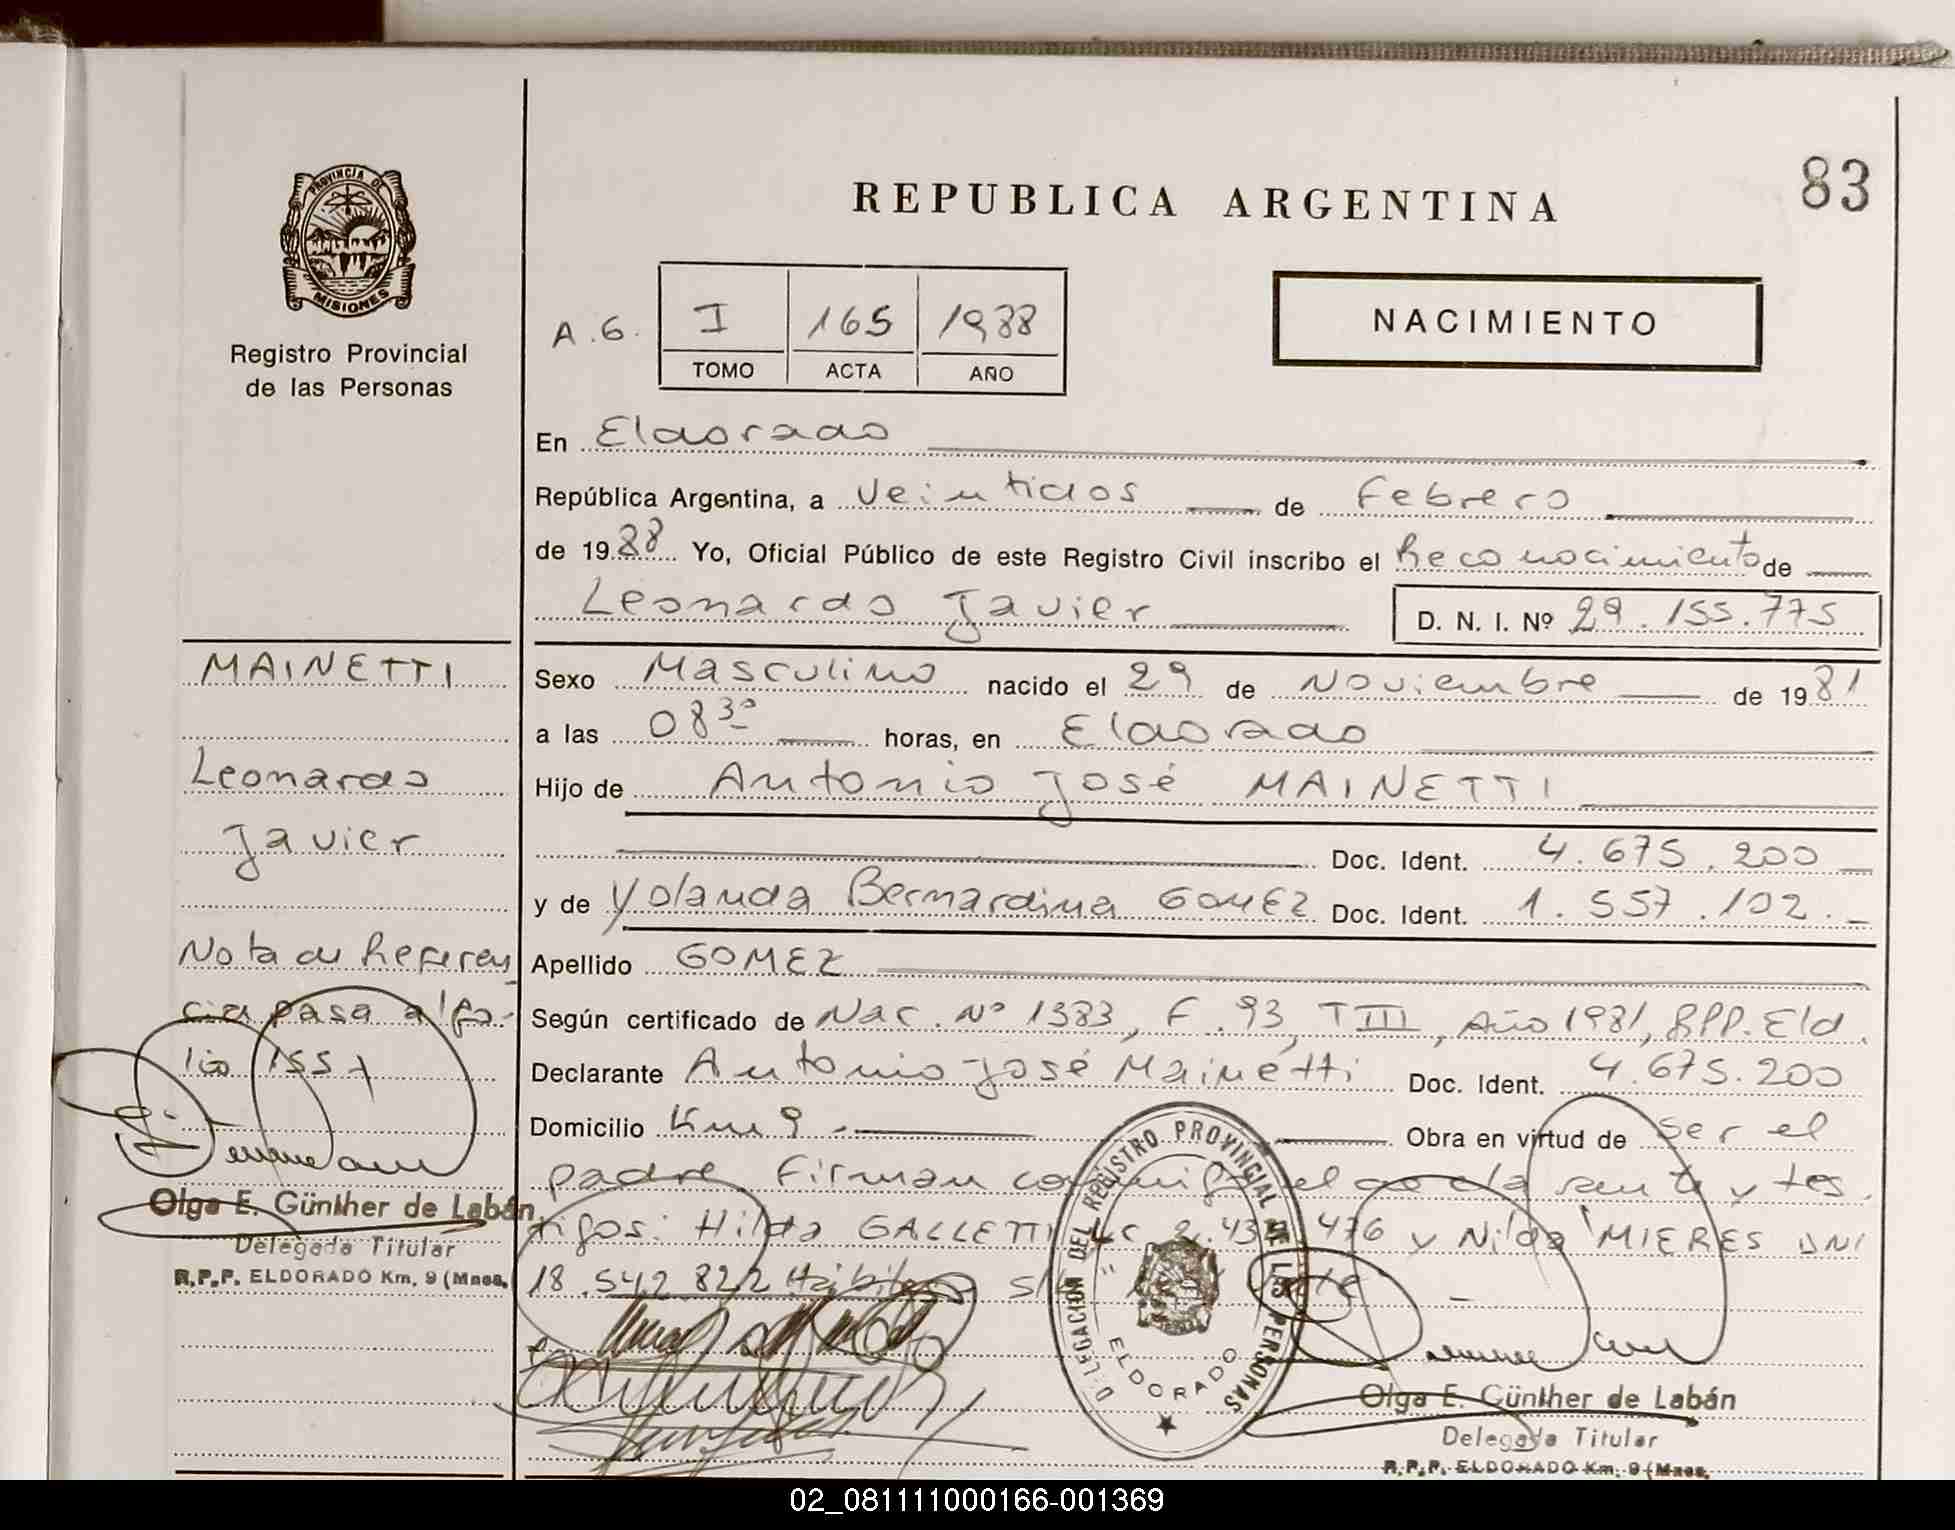 83
REPUBLICA ARGENTINA
PROVINCIA DE
MISIONES
Registro Provincial
de las Personas
A.G. I 165 1988
TOMO ACTA AÑO
NACIMIENTO
En Eldorado
República Argentina, a Veintidos de Febrero
de 1988 Yo, Oficial Público de este Registro Civil inscribo el Reconocimiento de
Leonardo Javier D. N. I. Nº 29.155.775
MAINETTI
Leonardo
Javier
Nota de Referen
cia pasa al fo-
lio 155
Olga E. Günther de Labán
Delegada Titular
R.P.P. ELDORADO Km. 9 (Mnes.
Sexo Masculino nacido el 29 de Noviembre de 1981
a las 08 30 horas, en Eldorado
Hijo de Antonio José MAINETTI
Doc. Ident. 4.675.200
y de Yolanda Bernardina GOMEZ Doc. Ident. 1.557.102.-
Apellido GOMEZ
Según certificado de Nac. Nº 1383, F. 93, T III, Año 1981, RPP. Eld.
Declarante Antonio José Mainetti Doc. Ident. 4.675.200
Domicilio Km 9.- Obra en virtud de ser el
padre Firman conmigo el declarante y tes
tigos: Hilda GALLETTI LC 476 y Nilda MIERES DNI
18.542.822 Hábiles
DELEGACION DEL REGISTRO PROVINCIAL DE LAS PERSONAS
ELDORADO
Olga E. Günther de Labán
Delegada Titular
R.P.P. ELDORADO Km. 9 (Mnes.
02_081111000166-001369